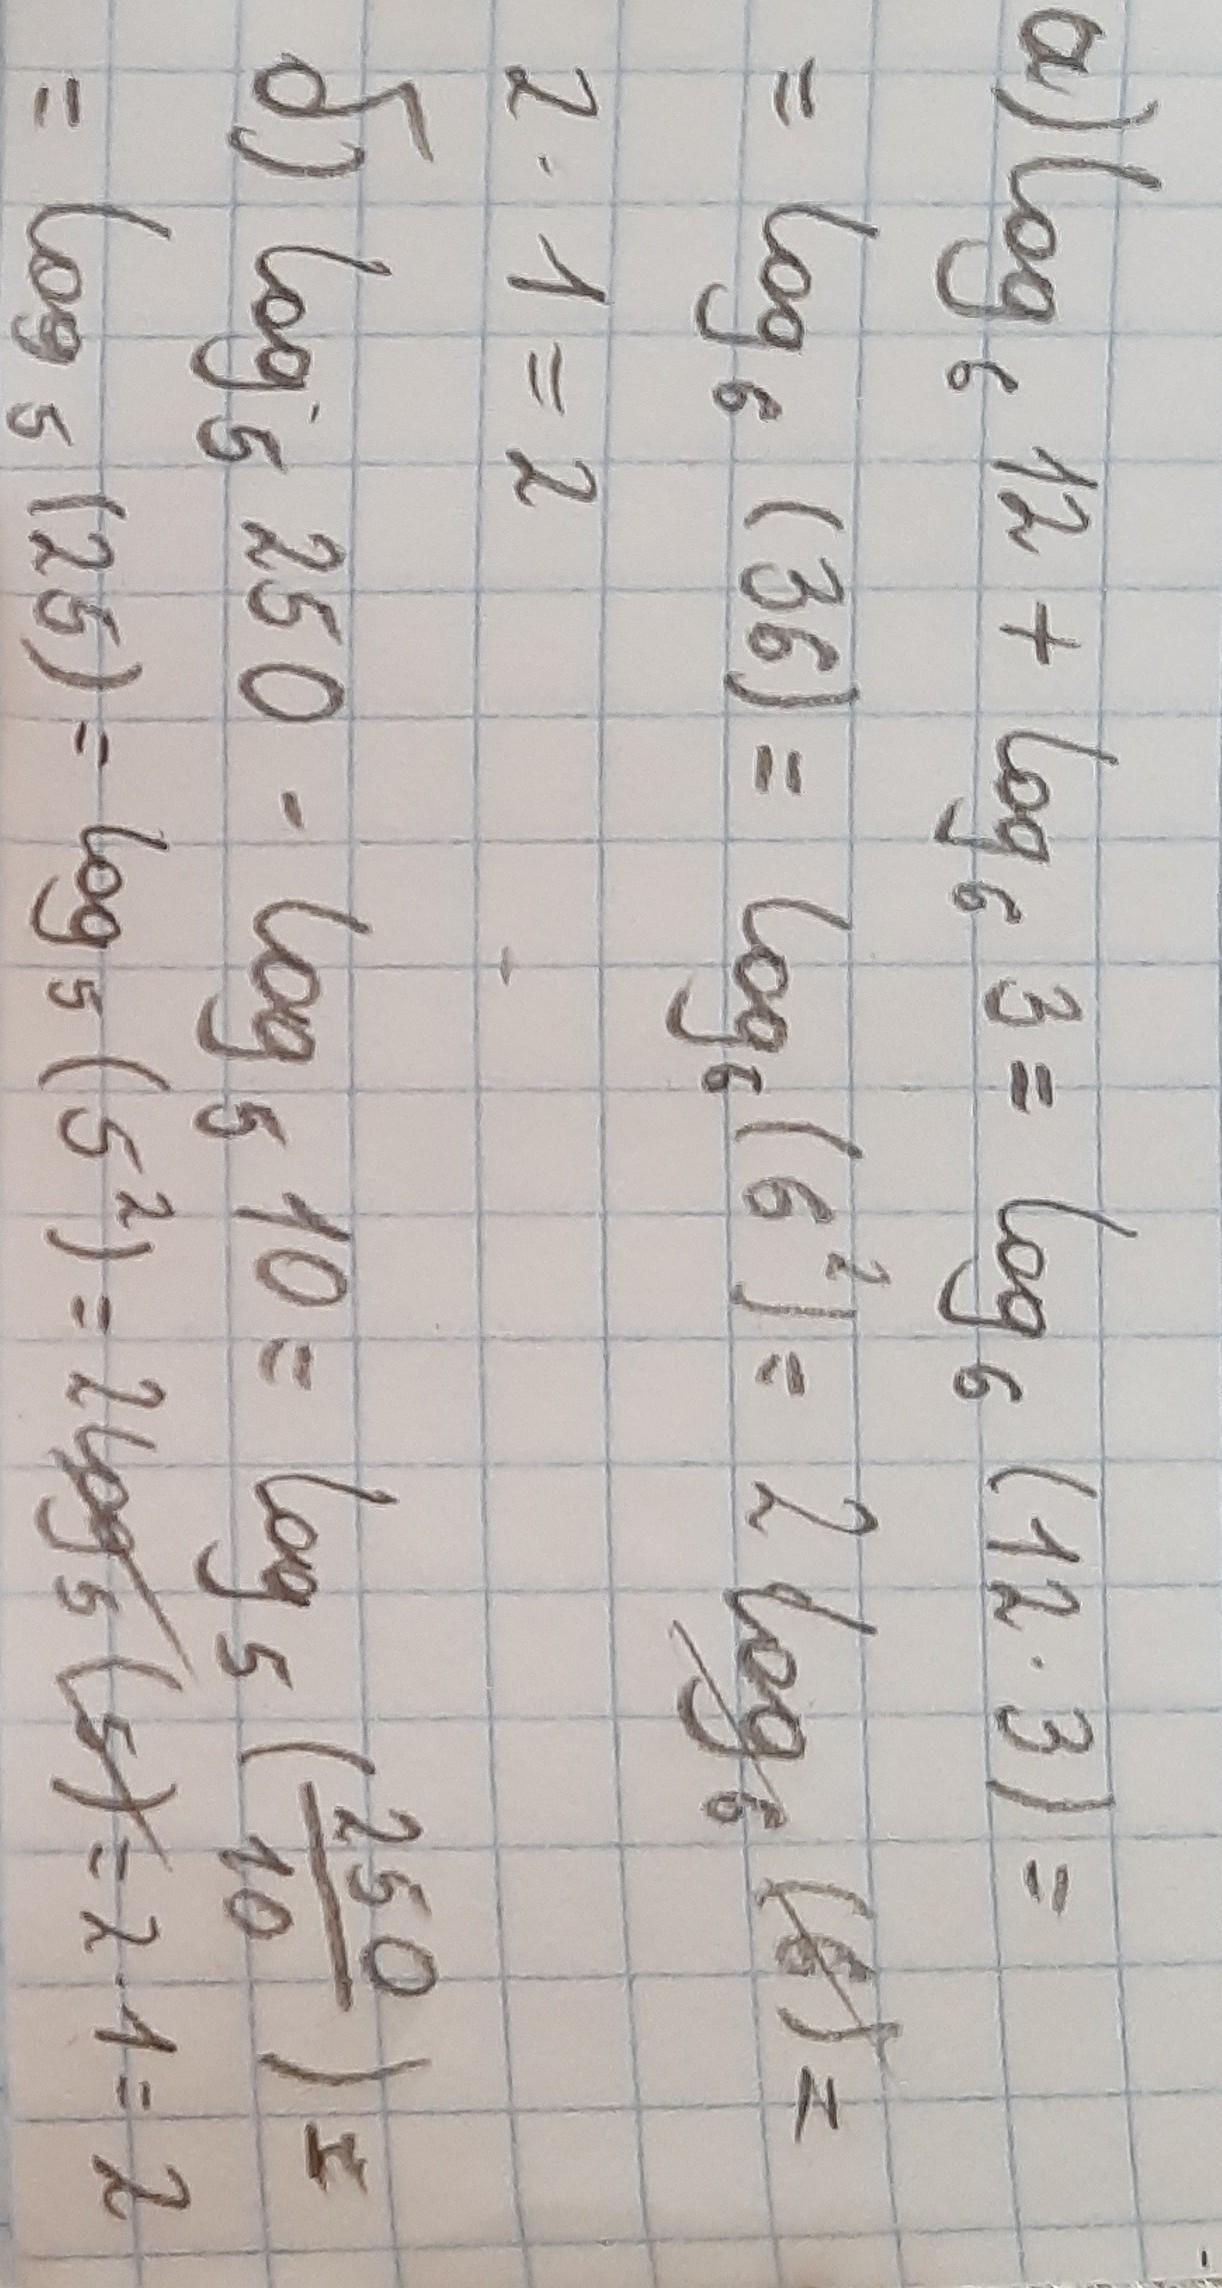 а) log₆ 12 + log₆ 3 = log₆ (12 · 3) =
= log₆ (36) = log₆ (6²) = 2 log₆ (6) =
2 · 1 = 2
б) log₅ 250 - log₅ 10 = log₅ (250/10) =
= log₅ (25) = log₅ (5²) = 2 log₅ (5) = 2 · 1 = 2